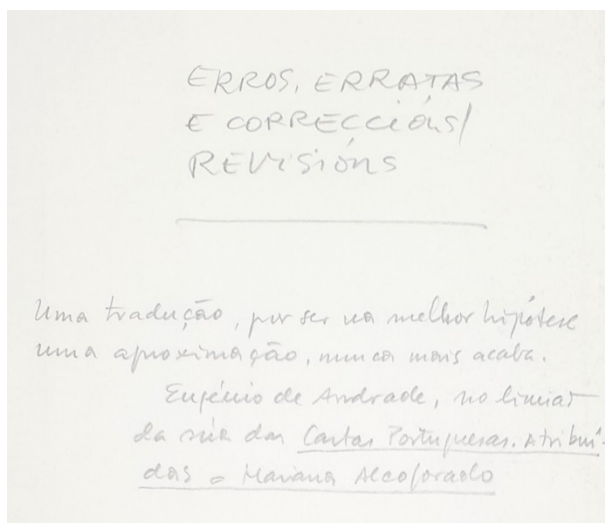 ERROS, ERRATAS
E CORRECCIÓNS/
REVISIÓNS
Uma tradução, por ser na melhor hipótese
uma aproximação, nunca mais acaba.
Eugénio de Andrade, no limiar
da súa das Cartas Portuguesas. Atribuí-
das a Mariana Alcoforado